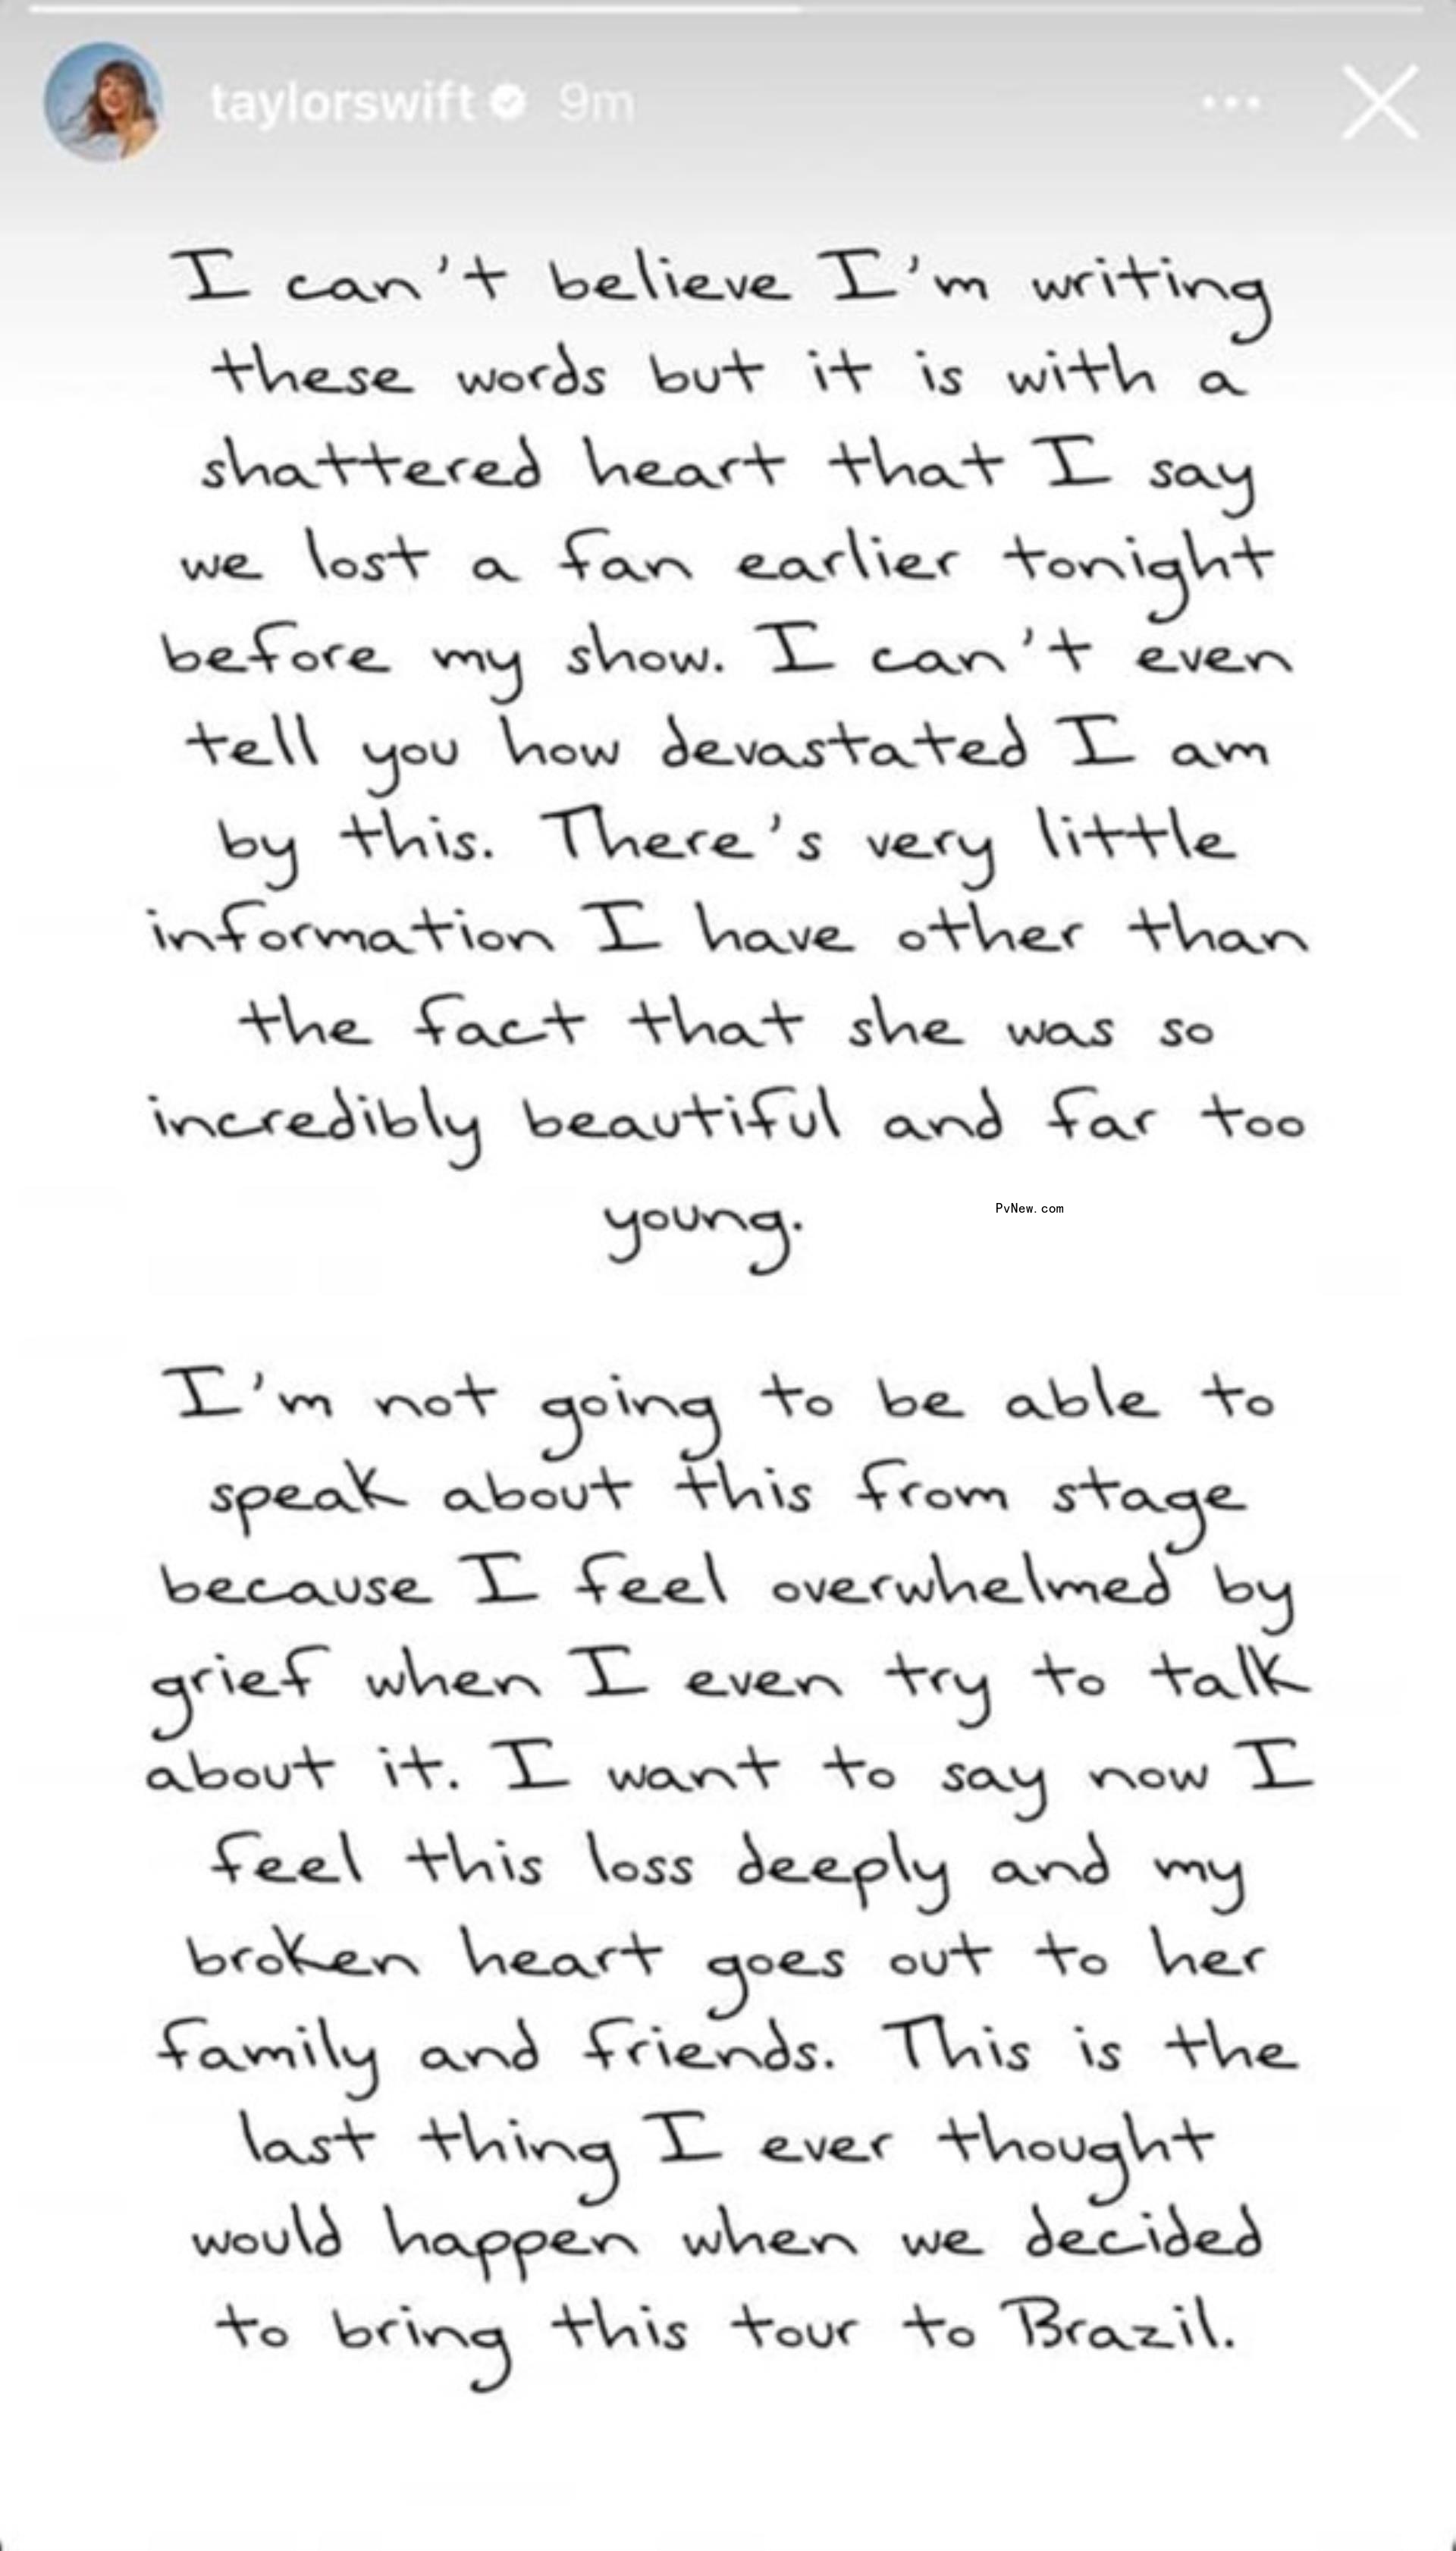 taylorswift 9m
I can't believe I'm writing
these words but it is with a
shattered heart that I say
we lost a fan earlier tonight
before my show. I can't even
tell you how devastated I am
by this. There's very little
information I have other than
the fact that she was so
incredibly beautiful and far too
young.
PvNew.com
I'm not going to be able to
speak about this from stage
because I feel overwhelmed by
grief when I even try to talk
about it. I want to say now I
feel this loss deeply and my
broken heart goes out to her
family and friends. This is the
last thing I ever thought
would happen when we decided
to bring this tour to Brazil.